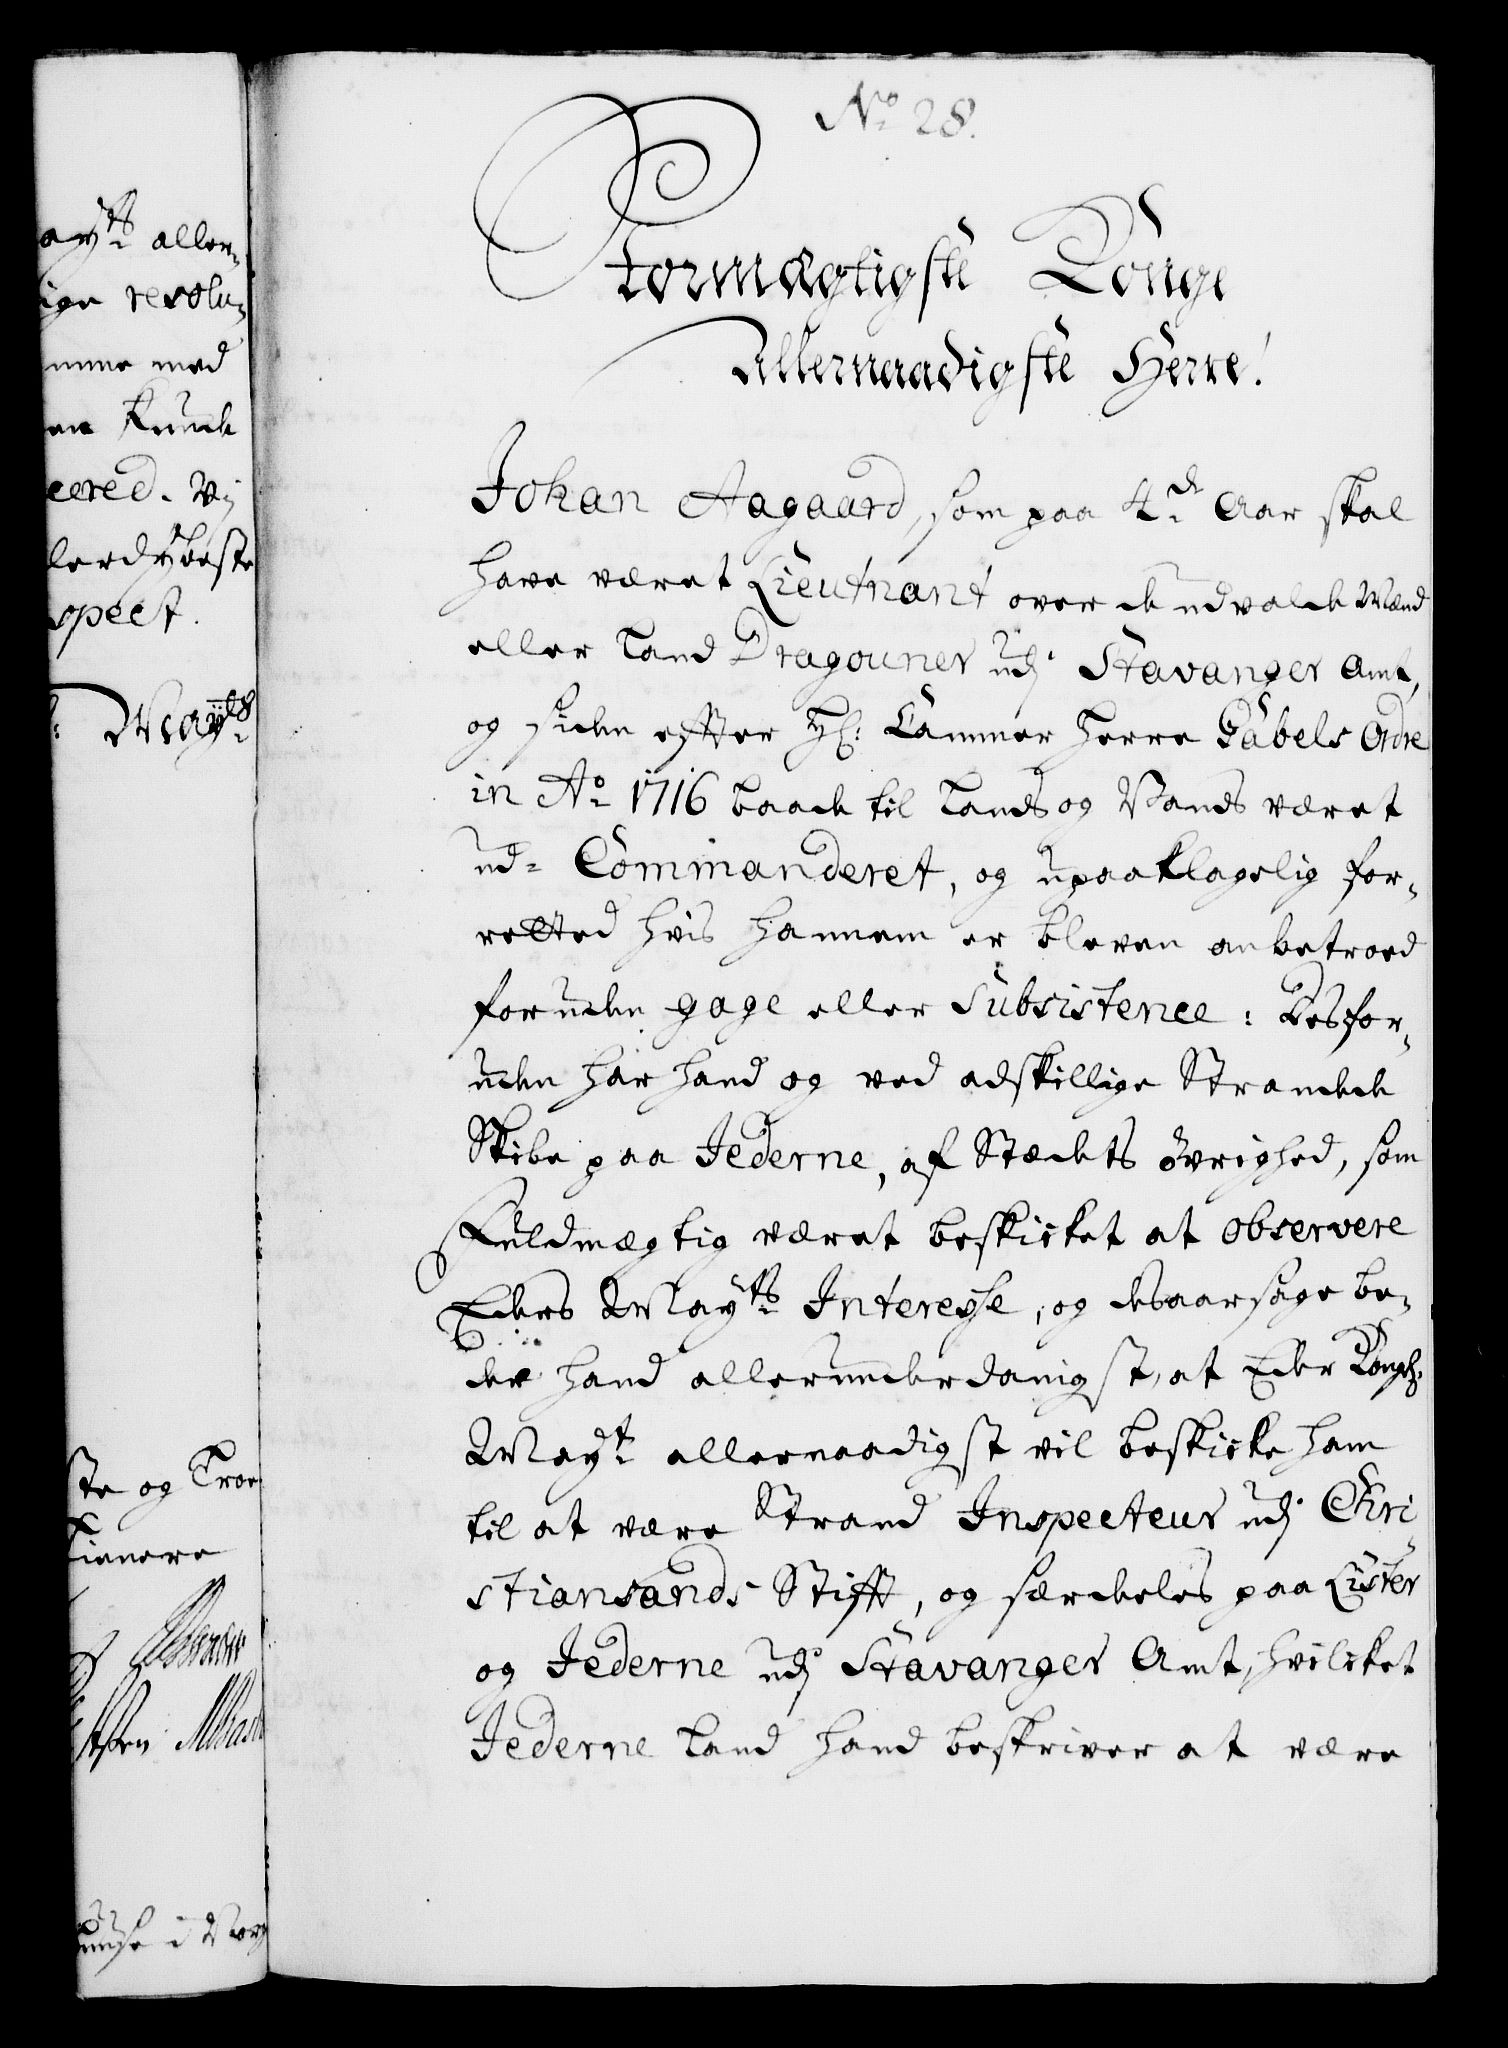 ayts aller-
ige resolu-
mme med
en kunde
cered. Vi
lerdybeste
spect.
: Mayts
ste og Troe
tienere
i Norg
No 28.
Stormægtigste Konge
Allernaadigste Herre!
Johan Aagaard, som paa 4de Aar skal
have været Lieutnant over de udvalde Mænd
eller Land Dragouner udj Stavanger Amt,
og siden efter Hr: Cammer Herre Gabels Ordre
in Ao 1716 baade til Lands og Vands været
ud= Commanderet, og upaaklagelig for-
retted hvis hannem er bleven anbetroed
foruden gage eller Subsistence: Desfor-
uden har hand og ved adskillige Strandede
Skibe paa Jederne, af Stædets Øvrighed, som
Fuldmægtig været beskicket at observere
Eders Mayts Interesse, og desaarsage be-
der hand allerunderdanigst, at Eder Kongl:
Mayt allernaadigst vil beskicke ham
til at være Strand Inspecteur udj Chri-
stiansands Stifft, og særdeles paa Lister
og Jederne udj Stavanger Amt, hvilcket
Jederne Land hand beskriver at være